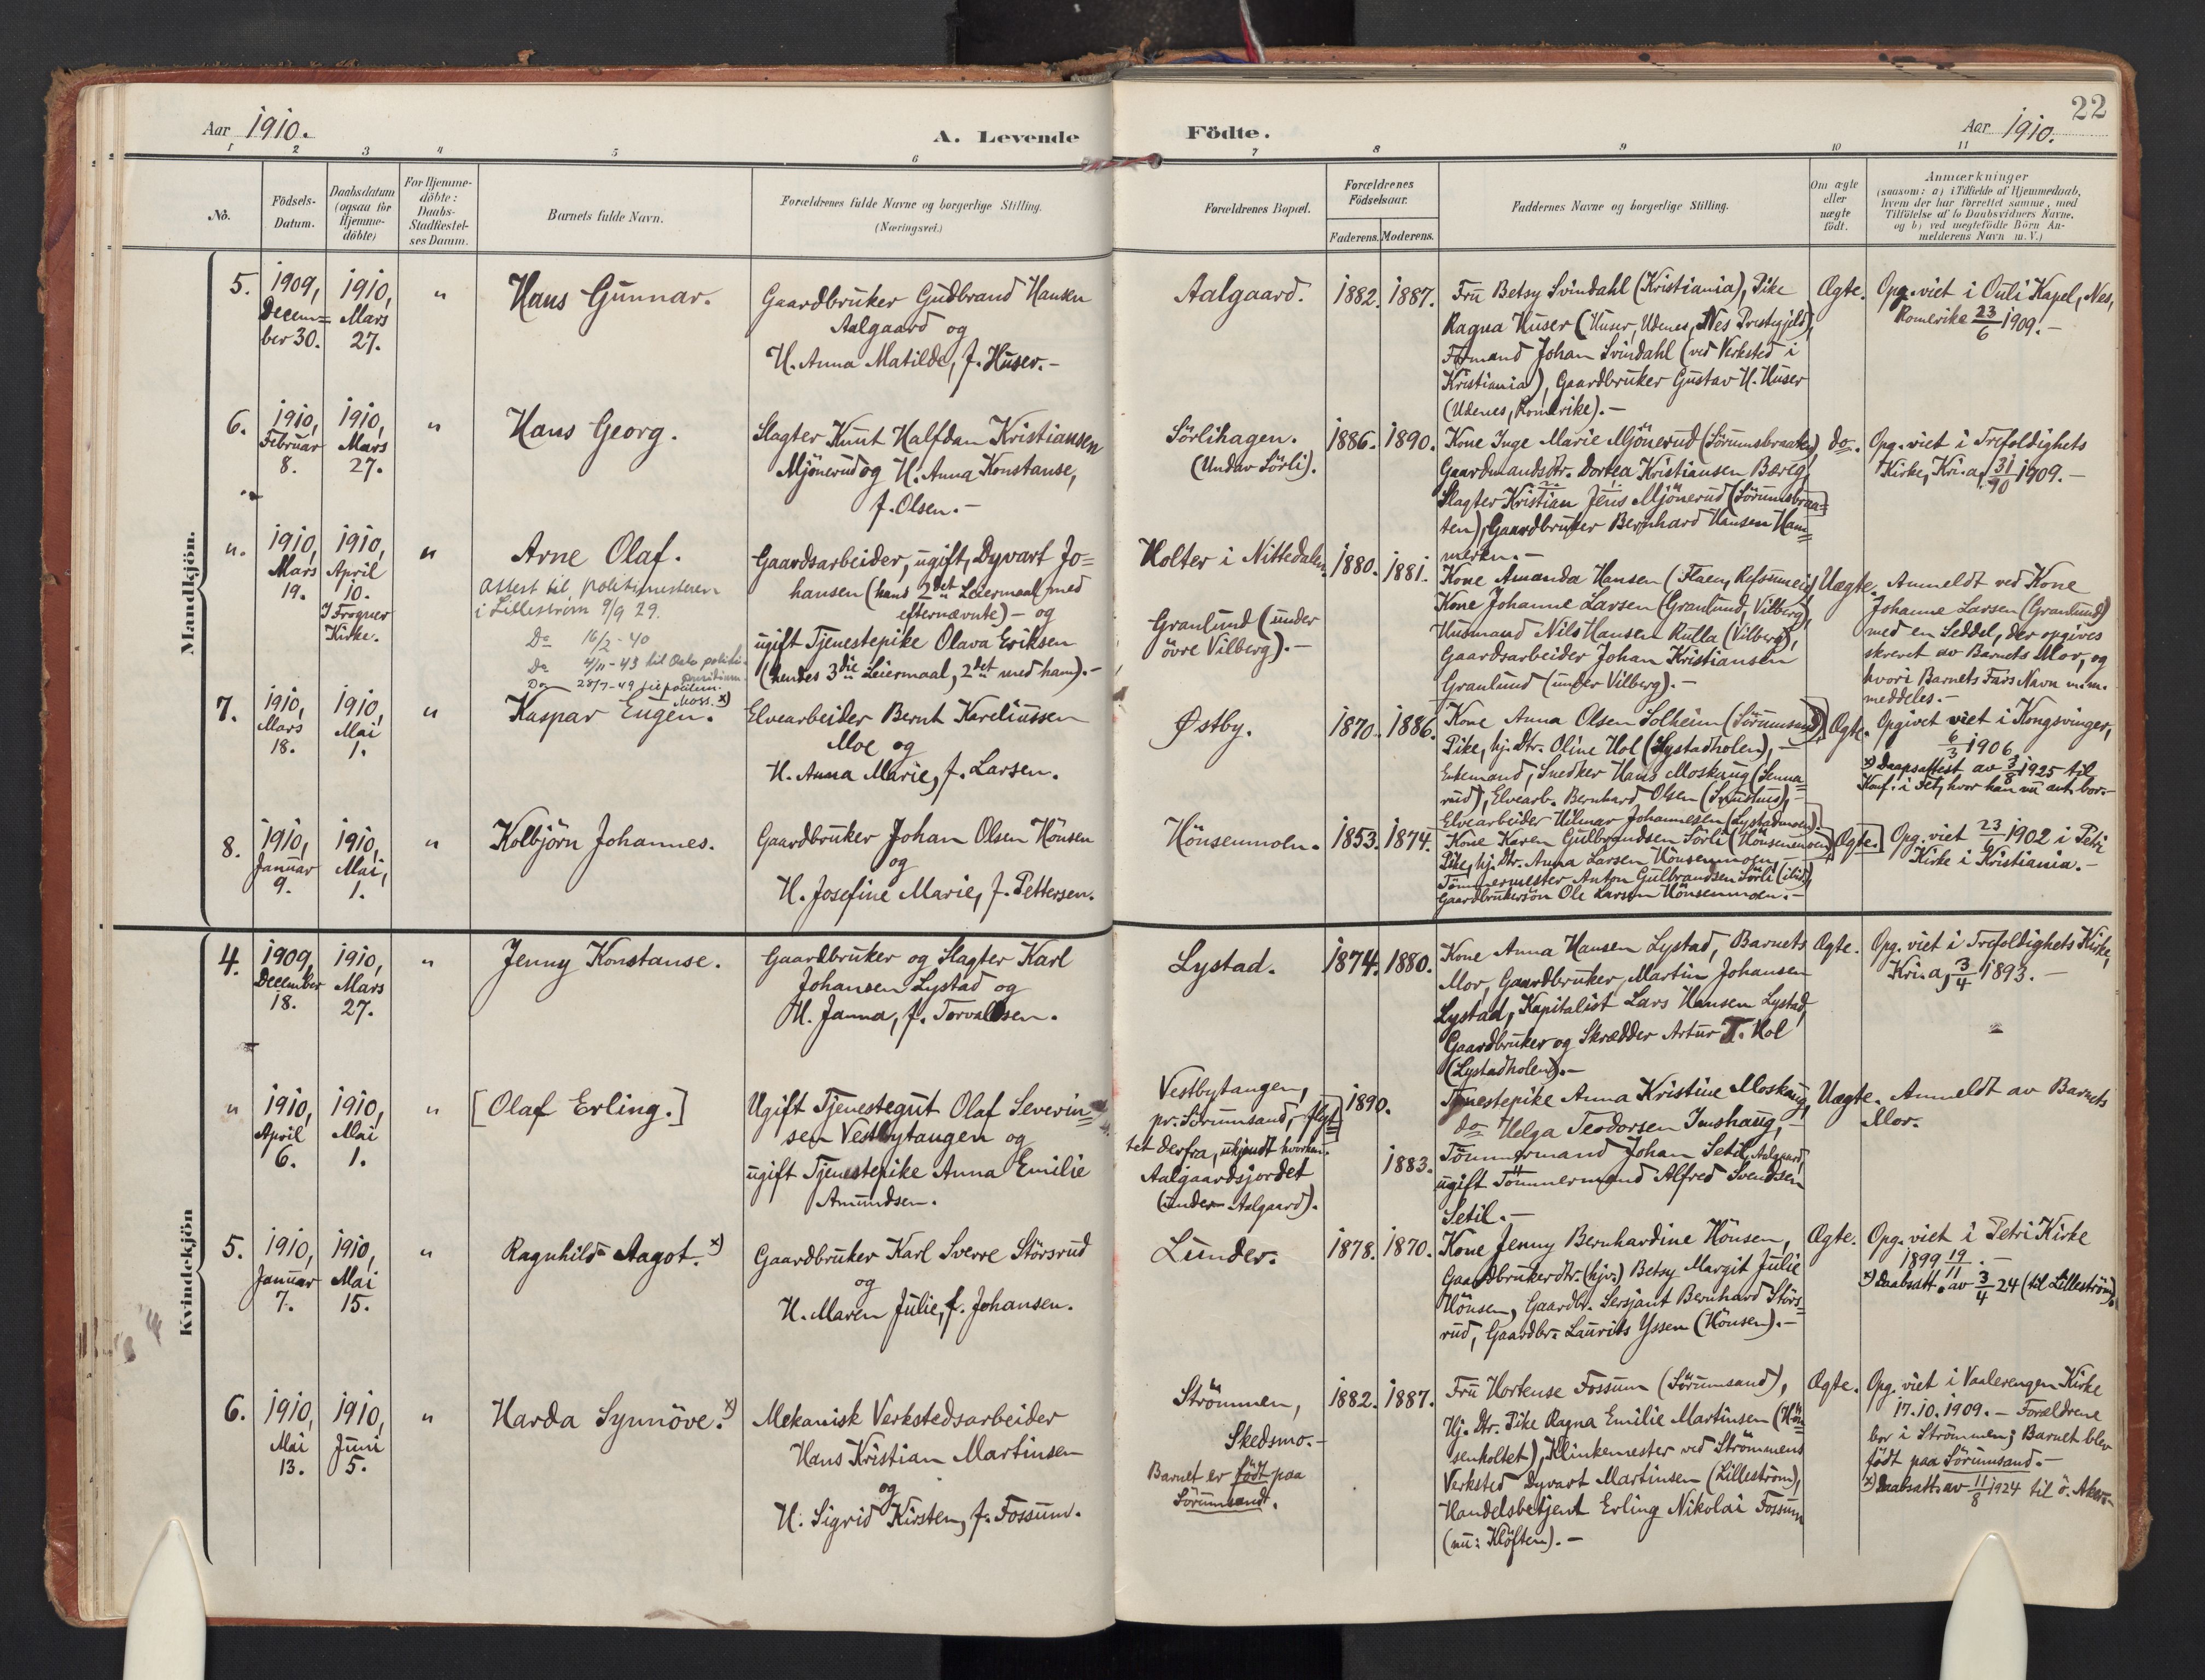 22
Aar 1910.
A. Levende
Födte.
Aar 1910.
1 2 3 4 5 6 7 8 9 10 11
No.
Födsels-
Datum.
Daabsdatum
(ogsaa for
Hjemme-
döbte)
For Hjemme-
döbte:
Daabs-
Stadfæstel-
ses Datum.
Barnets fulde Navn.
Forældrenes fulde Navne og borgerlige Stilling.
(Næringsvei.)
Forældrenes Bopæl.
Forældrenes
Födselsaar.
Faderens. Moderens.
Faddernes Navne og borgerlige Stilling.
Om ægte
eller
uægte
födt.
Anmærkninger
(saasom: a) i Tilfælde af Hjemmedaab,
hvem der har forrettet samme, med
Tilföielse af to Daabsvidners Navne,
og b) ved uægtefödte Börn An-
melderens Navn m. V.)
Mandkjön.
5.
1909,
Decem=
ber 30.
1910,
Mars
27.
"
Hans Gunnar.
Gaardbruker Gudbrand Hansen
Aalgaard og
H. Anna Matilde, f. Huser.-
Aalgaard.
1882. 1887.
Fru Betsy Svindahl (Kristiania), Pike
Ragna Huser (Huser, Udenes, Nes Prestegjeld),
Formand Johan Svindahl (ved Verksted i
Kristiania), Gaardbruker Gustav H. Huser
(Udenes, Romerike).-
Ægte.
Opg. viet i Ouli Kapel, Nes,
Romerike 23/6 1909.-
6.
1910,
Februar
8.
1910,
Mars
27.
"
Hans Georg.
Slagter Knut Halfdan Kristiansen
Mjönerud og H. Anna Konstanse,
f. Olsen.-
Sörlihagen.
(Undav Sörli).
1886. 1890.
Kone Inge Marie Mjönerud (Sörumsbraaten),
Gaardmandsdtr. Dortea Kristiansen Bæreg,
Slagter Kristian Jens Mjönerud (Sörumsbraa=
ten), Gaardbruker Bernhard Hansen Ham=
meren.-
do.
Opg. viet i Trefoldighets
Kirke, Kr.a, 31/10 1909.-
".
1910,
Mars
19.
1910,
April
10.
I Frogner
Kirke.
"
Arne Olaf.
Attest til politimesteren
i Lilleström 9/9 29.
Do 16/2-40
Do 4/11-43 til Oslo politi-
præsidium.
Do 28/7-49
Moss.
Gaardsarbeider, ugift, Dyvart Jo=
hansen (hans 2det Leiermaal med
efternævnte) - og
ugift Tjenestepike Olava Eriksen
(hendes 3die Leiermaal, 2det med ham).-
Holter i Nittedalen.
Granlund (under
övre Vilberg).-
1880. 1881.
Kone Amanda Hansen (Flaen,
Kone Johanne Larsen (Granlund, Vilberg),
Husmand Nils Hansen Rulla (Vilberg),
Gaardsarbeider Johan Kristiansen
Granlund (under Vilberg).-
Uægte.
Anmeldt ved Kone
Johanne Larsen (Granlund)
med en Seddel, der opgives
skrevet av Barnets Mor, og
hvori Barnets Fars Navn m.m.
meddeles.-
7.
1910,
Mars
18.
1910,
Mai
1.
"
Kaspar Eugen. x)
Elvearbeider Bernt Kareliussen
Moe og
H. Anna Marie, f. Larsen.
Østby.
1870. 1886.
Kone Anna Olsen Solheim (Sörumsand),
Pike, hj. Dtr. Oline Hol (Lystadholen),-
Enkemand, Snedker Hans Moskaug (Senna=
rud), Elvearb. Bernhard Olsen
Elvearbeider Hilmar Johannessen (Lystadmoen).
Ægte.
Opgivet viet i Kongsvinger,
6/3 1906.
x) Daapsattest av 3/8 1925 til
Konf. i Fet, hvor han nu ant. bor.-
8.
1910,
Januar
9.
1910,
Mai,
1.
"
Kolbjörn Johannes.
Gaardbruker Johan Olsen Hönsen
og
H. Josefine Marie, f. Pettersen.
Hönsenmoen.
1853. 1874.
Kone Karen Gulbrandsen Sörli (Hönsenmoen),
Pike, hj. Dtr. Anna Larsen Hönsenmoen,
Tömmermester Anton Gulbrandsen Sörli (ibid),
Gaardbrukersön Ole Larsen Hönsenmoen.-
[Ægte.]
Opg. viet 23/6 1902 i Petri
Kirke i Kristiania.-
Kvindekjön
4.
1909,
December
18.
1910,
Mars
27.
"
Jenny Konstanse.
Gaardbruker og Slagter Karl
Johansen Lystad og
H. Janna, f. Torvaldsen.
Lystad.
1874. 1880.
Kone Anna Hansen Lystad, Barnets
Mor, Gaardbruker Martin Johansen
Lystad, Kapitalist Lars Hansen Lystad,
Gaardbruker og Skrædder Artur T. Hol
(Lystadholen).-
Ægte.
Opg. viet i Trefoldighets Kirke,
Kr.a, 3/4 1893.-
"
1910,
April
6.
1910,
Mai
1.
"
[Olaf Erling.]
Ugift Tjenestegut Olaf Severin=
sen Vestbytangen og
ugift Tjenestepike Anna Emilie
Amundsen.
Vestbytangen,
pr. Sörumsand, flyt=
tet derfra, ukjendt hvorhen.
Aalgaardsjordet
(under Aalgaard).
1890.
1883.
Tjenestepike Anna Kristine Moskaug,
do Helga Teodorsen Imshaug,-
Tömmermand Johan Setil, Aalgaard,
ugift Tömmermand Alfred Svendsen
Setil.-
Uægte.
Anmeldt av Barnets
Mor.
5.
1910,
Januar
7.
1910,
Mai
15.
"
Ragnhild Aagot. x)
Gaardbruker Karl Sverre Störsrud
og
H. Maren Julie, f. Johansen.
Lunder.
1878. 1870.
Kone Jenny Bernhardine Hönsen,
Gaardbrukerdtr. (hjv.) Betsy Margit Julie
Hönsen, Gaardbr. Sersjant Bernhard Störs=
rud, Gaardbr. Laurits Yssen (Hönsen).-
Ægte.
Opg. viet i Petri Kirke
1899 19/11.-
x) Daabsatt. av 3/4 24 (til Lilleström).
6.
1910,
Mai
13.
1910,
Juni
5.
"
Harda Synnöve. x)
Mekanisk Verkstedsarbeider
Hans Kristian Martinsen
og
H. Sigrid Kirsten, f. Fossum.
Strömmen,
Skedsmo.-
Barnet er födt paa
Sörumsand.
1882. 1887.
Fru Hortense Fossum (Sörumsand),
Hj. Dtr. Pike Ragna Emilie Martinsen (Hön=
senholtet), Klinkemester ved Strömmens
Verksted Dyvart Martinsen (Lilleström),
Handelsbetjent Erling Nikolai Fossum
(nu: Klöften).-
Ægte.
Opg. viet i Vaalerengen Kirke
17.10.1909.- Forældrene
bor i Strömmen; Barnet blev
födt paa Sörumsand.-
x) Daabsatt. av 11/8 1924 til ö. Aker.-